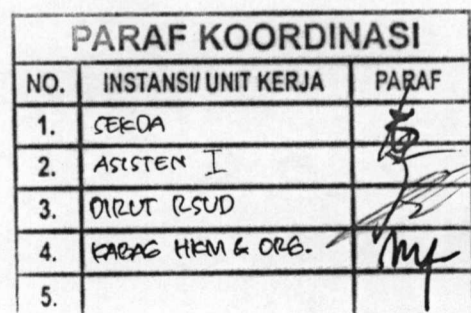 PARAF KOORDINASI
NO. INSTANSI/ UNIT KERJA PARAF
1. SEKDA
2. ASISTEN I
3. DIRUT RSUD
4. KABAG HKM & ORG.
5.